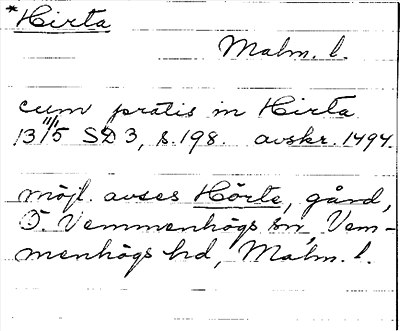 *Hirta
Malm. l.
cum pratis in Hirta
13 11/1 15 SD 3, s. 198. avskr. 1494.
möjl. avses Hörte, gård,
Ö. Vemmenhögs sn, Vem-
menhögs hd, Malm. l.